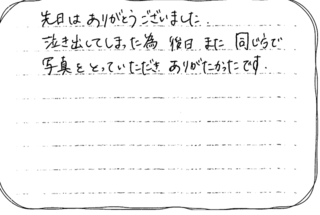 先日は ありがとうございました.
泣き出してしまった為 後日 また 同じからで
写真をとっていただき ありがたかったです.